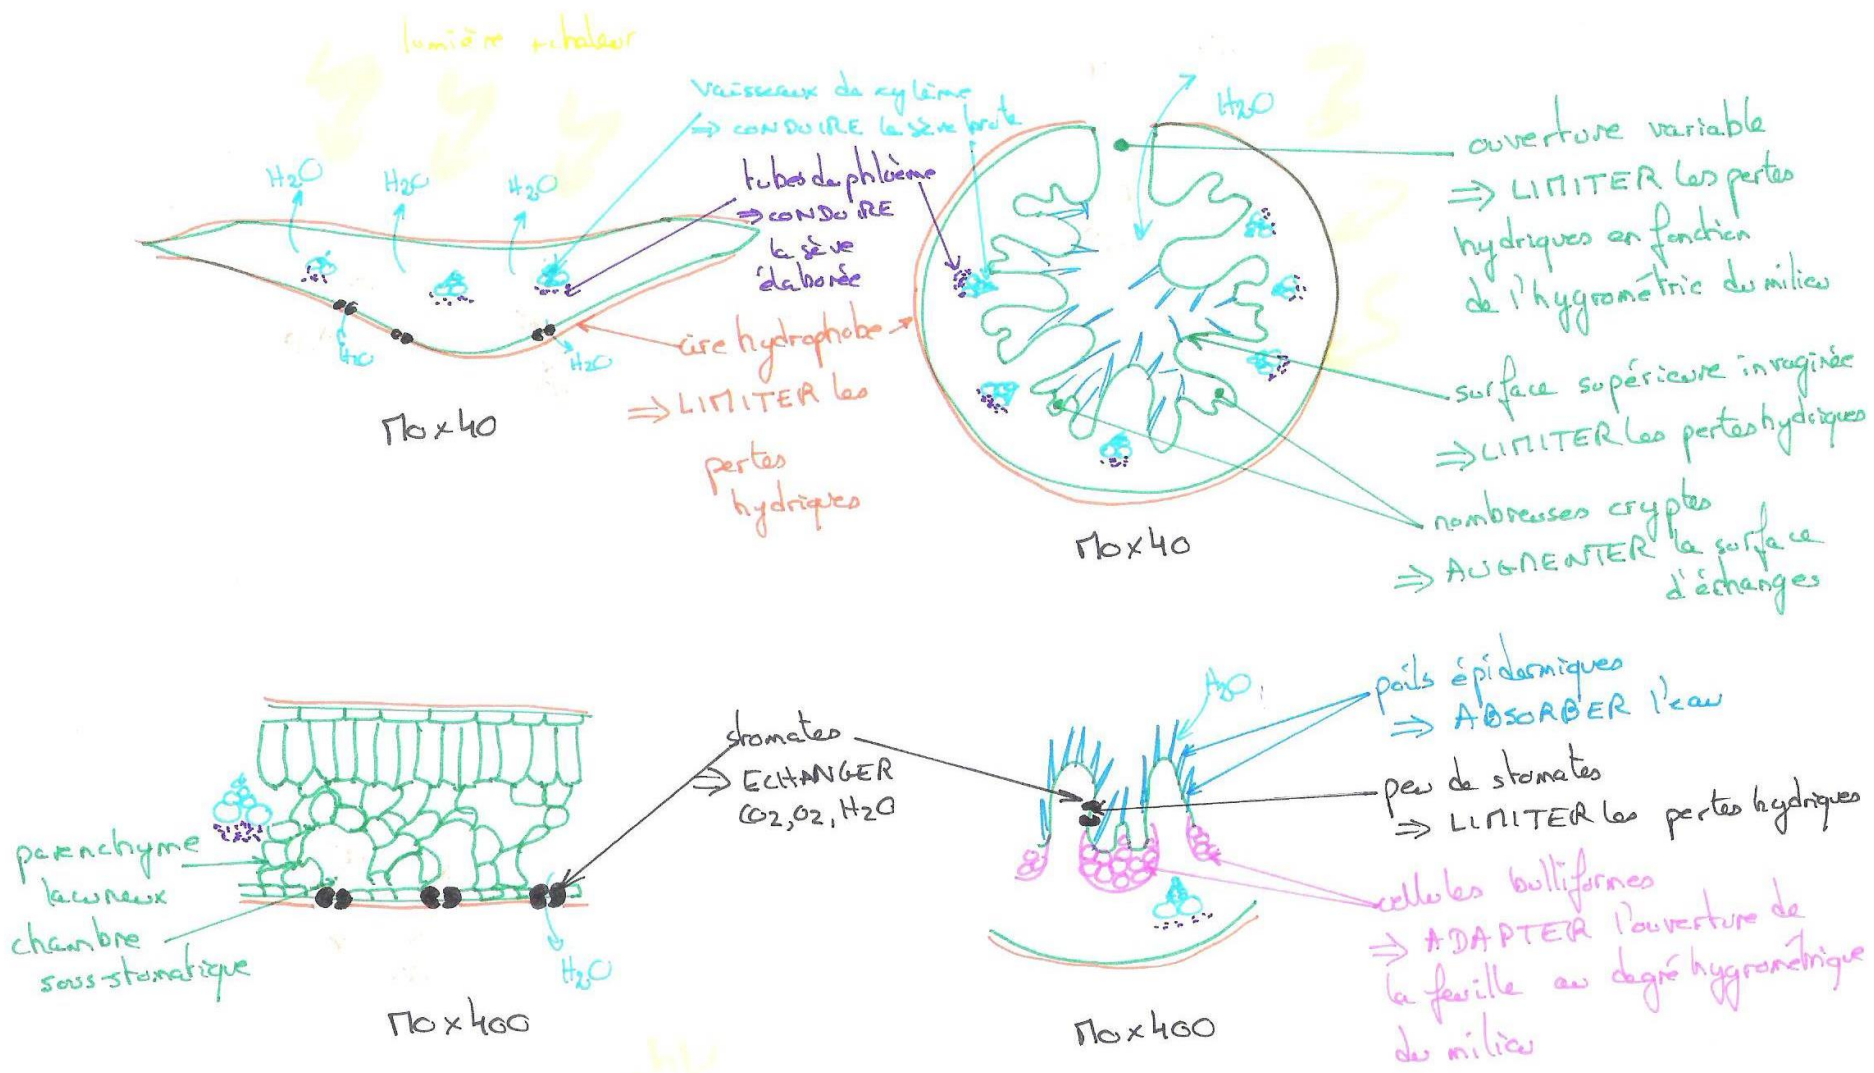 lumière +chaleur
H2O
H2O
H2O
vaisseaux de xylème
⇒ CONDUIRE la sève brute
tubes de phloème
⇒ CONDUIRE
la sève
élaborée
H2O
H2O
cire hydrophobe
⇒ LIMITER les
pertes
hydriques
MO x 40
H2O
ouverture variable
⇒ LIMITER les pertes
hydriques en fonction
de l'hygrométrie du milieu
surface supérieure invaginée
⇒ LIMITER les pertes hydriques
nombreuses cryptes
⇒ AUGMENTER la surface
d'échanges
MO x 40
parenchyme
lacuneux
chambre
sous-stomatique
H2O
MO x 400
stomates
⇒ ECHANGER
CO2, O2, H2O
H2O
poils épidermiques
⇒ ABSORBER l'eau
peu de stomates
⇒ LIMITER les pertes hydriques
cellules bulliformes
⇒ ADAPTER l'ouverture de
la feuille au degré hygrométrique
du milieu
MO x 400